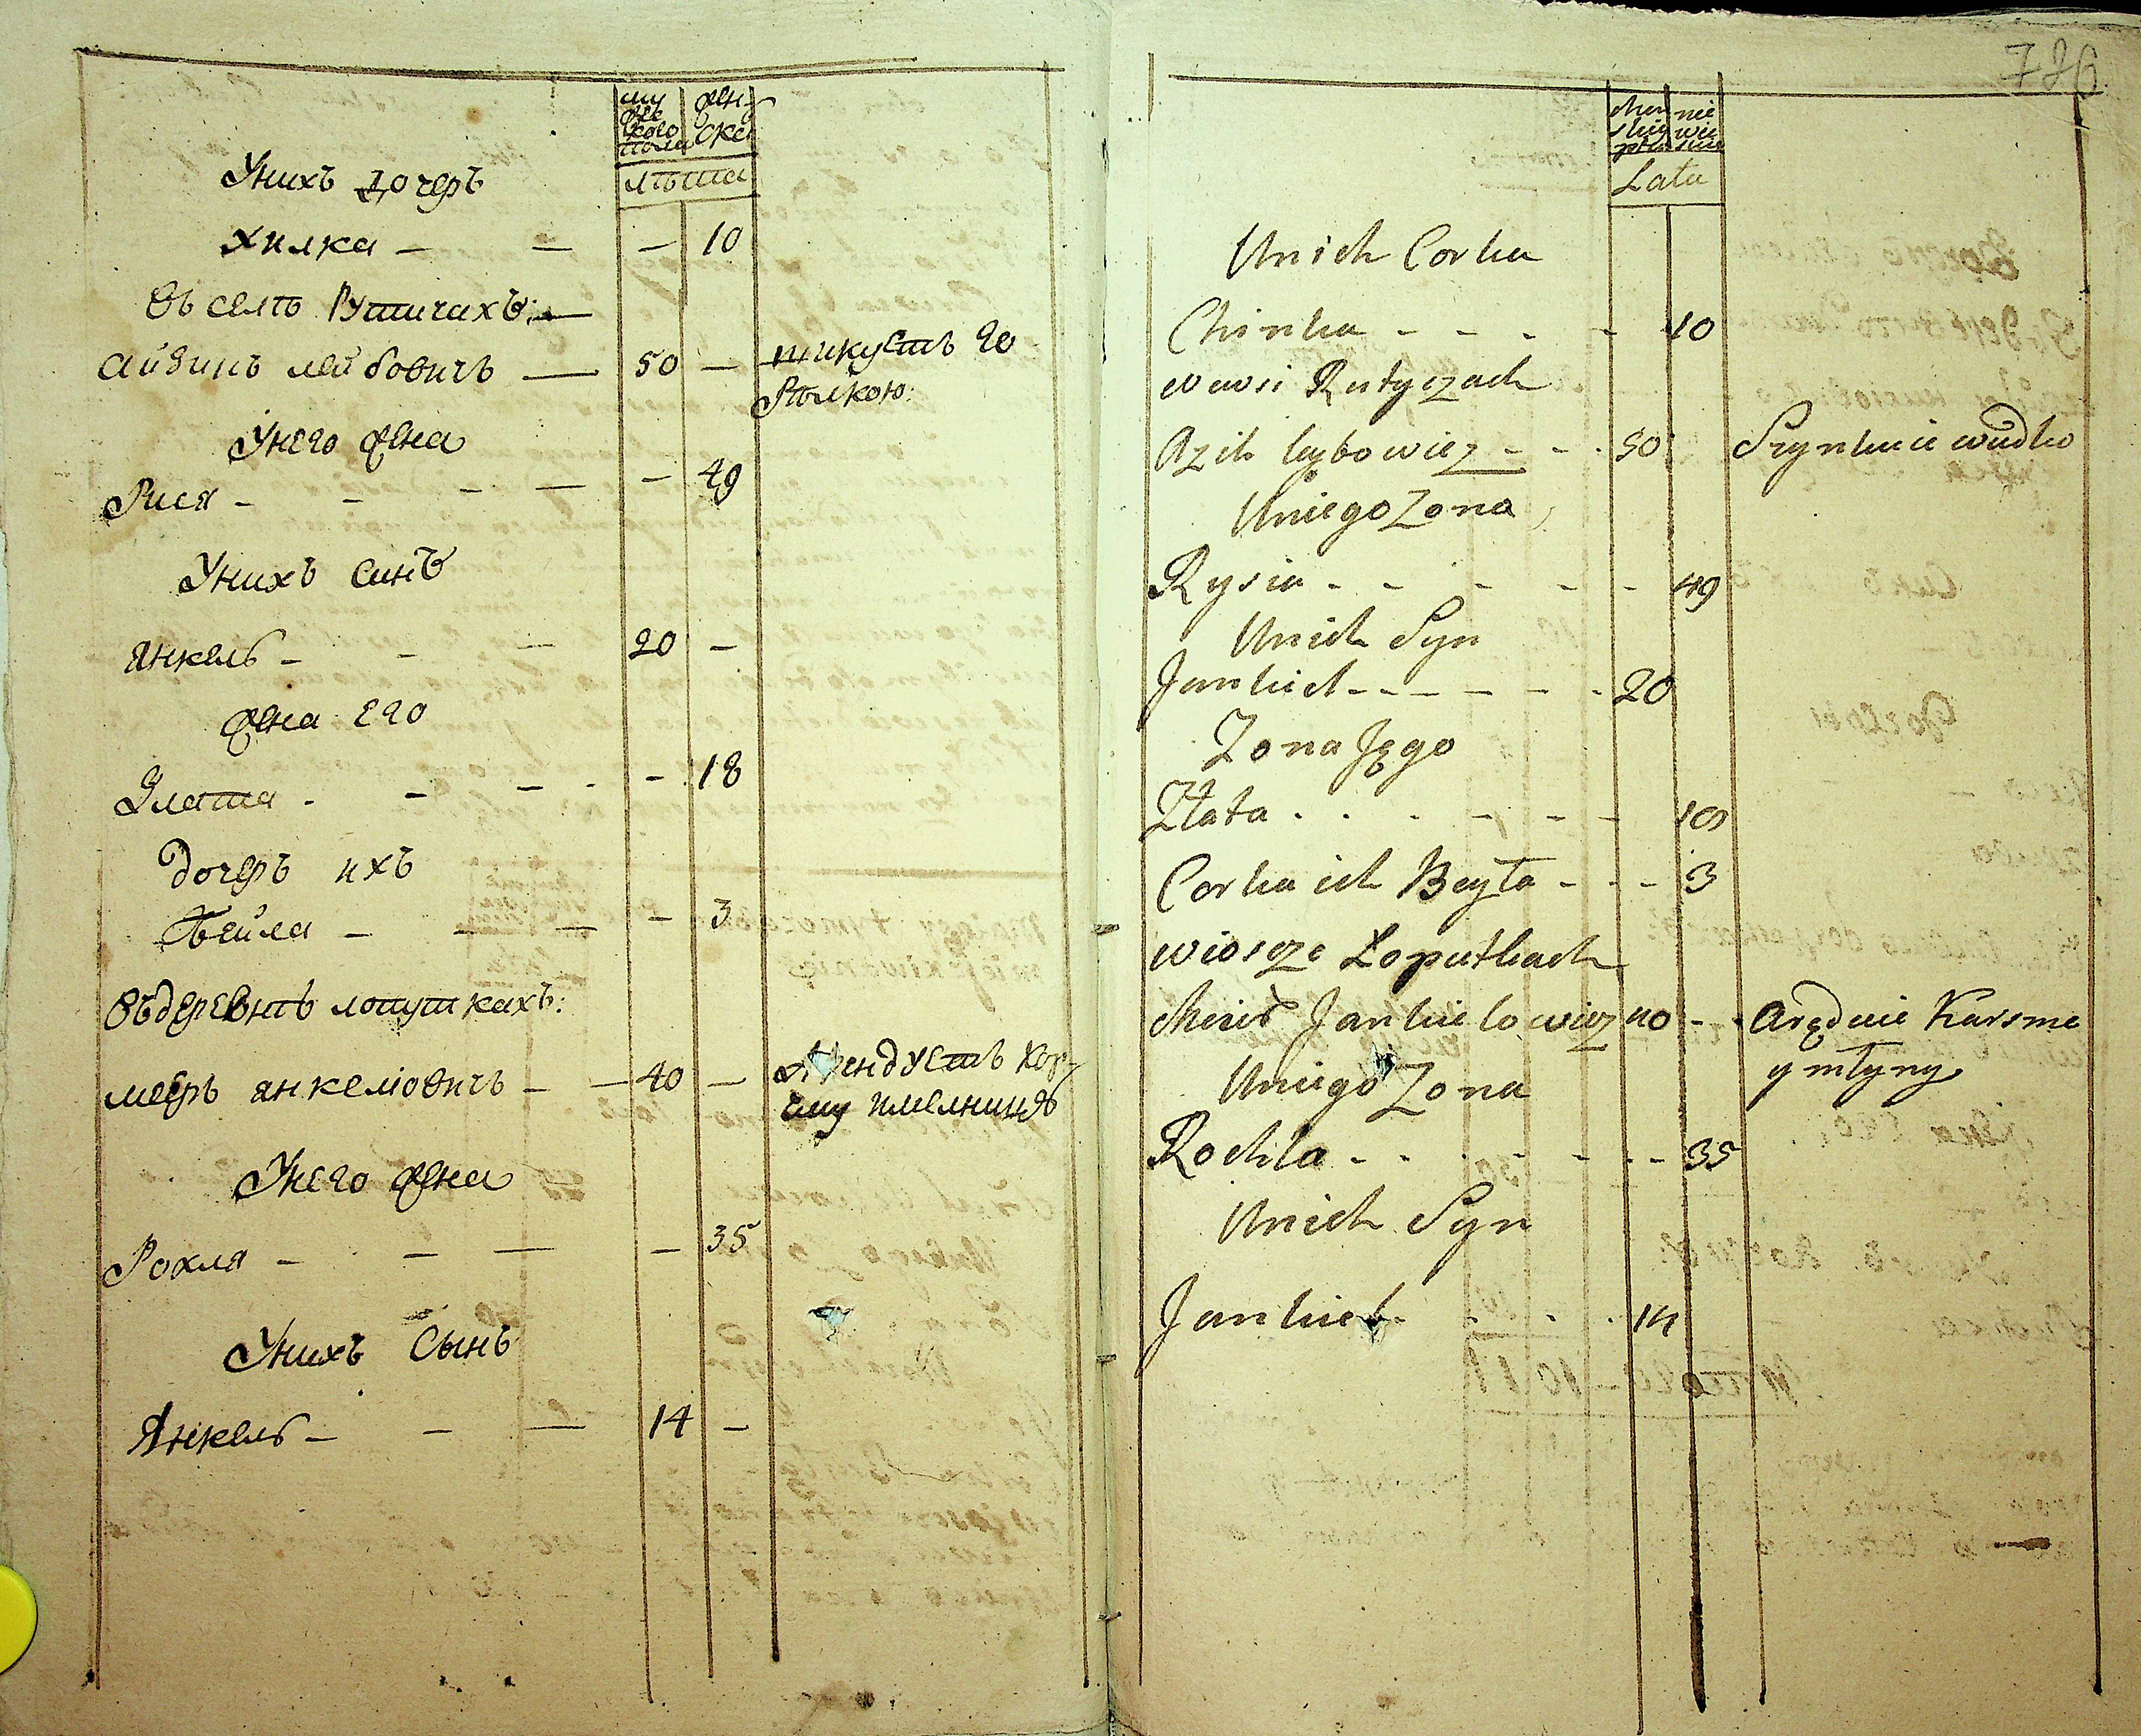 му
жес
кого
пола
жен
ска
лѣта
Унихъ дочеръ
Хилка — — — 10
Въ селѣ Рутичахъ: —
Айзикъ лейбовичъ — 50 — шикуетъ го
рѣлкою:
Унего жена
Рися - - - — - 49
Унихъ синъ
Янкель - - — 20 —
жена его
Злата - - - - - 18
дочеръ ихъ
Бейла — — — — 3
Въдеревнѣ лопуткахъ:
мееръ янкеліовичъ - — 40 — Арендуетъ Кор-
чму имелницѣ
Унего жена
Рохля - — — — 35
Унихъ Сынъ
Янкель - — — 14 —
726
Lata
Unich Corka
Chinka - - - - 10
wewsi Rutyczach
Azik leybowicz - - 50 Szynkuie wudko
Uniego Zona
Rysia - - - - - 49
Unich Syn
Jankiel - - - - - 20
Zona Jego
Złata . . . - - - 18
Corka ich Beyła - - - 3
wiosçe Łoputkach
Meier Jankielowicz 40 - - Aręduie Karsme
y młyny
Uniego Zona
Rochla - - - - - - 35
Unich Syn
Jankiel - . . . 14